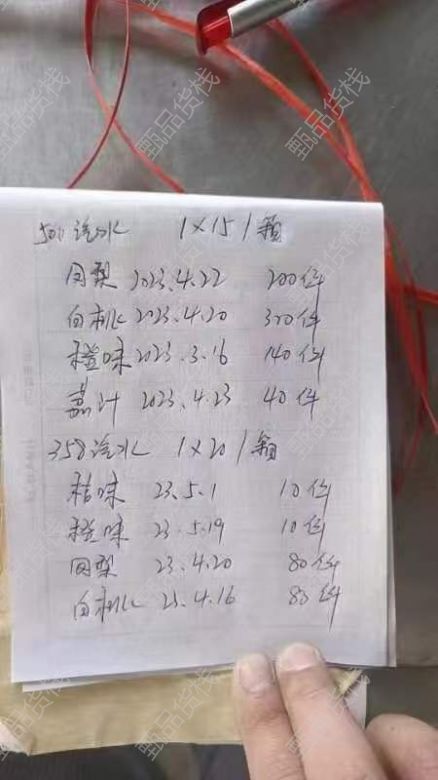 500汽水 1×15/箱
凤梨 2023.4.22 200件
白桃 2023.4.20 300件
橙味 2023.3.16 140件
2023.4.23 40件
358汽水 1×20/箱
桔味 23.5.1 10件
橙味 23.5.19 10件
凤梨 23.4.20 80件
白桃 23.4.16 80件
甄品货栈